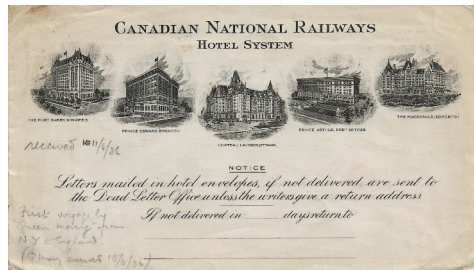 CANADIAN NATIONAL RAILWAYS
HOTEL SYSTEM
THE FORT GARRY, WINNIPEG
PRINCE EDWARD, BRANDON
CHATEAU LAURIER, OTTAWA
PRINCE ARTHUR, PORT ARTHUR
THE MACDONALD, EDMONTON
received 11/6/36
NOTICE
Letters mailed in hotel envelopes, if not delivered, are sent to
the Dead Letter Office, unless the writers give a return address
If not delivered in days return to
First voyage by
Queen Mary from
N Y to England